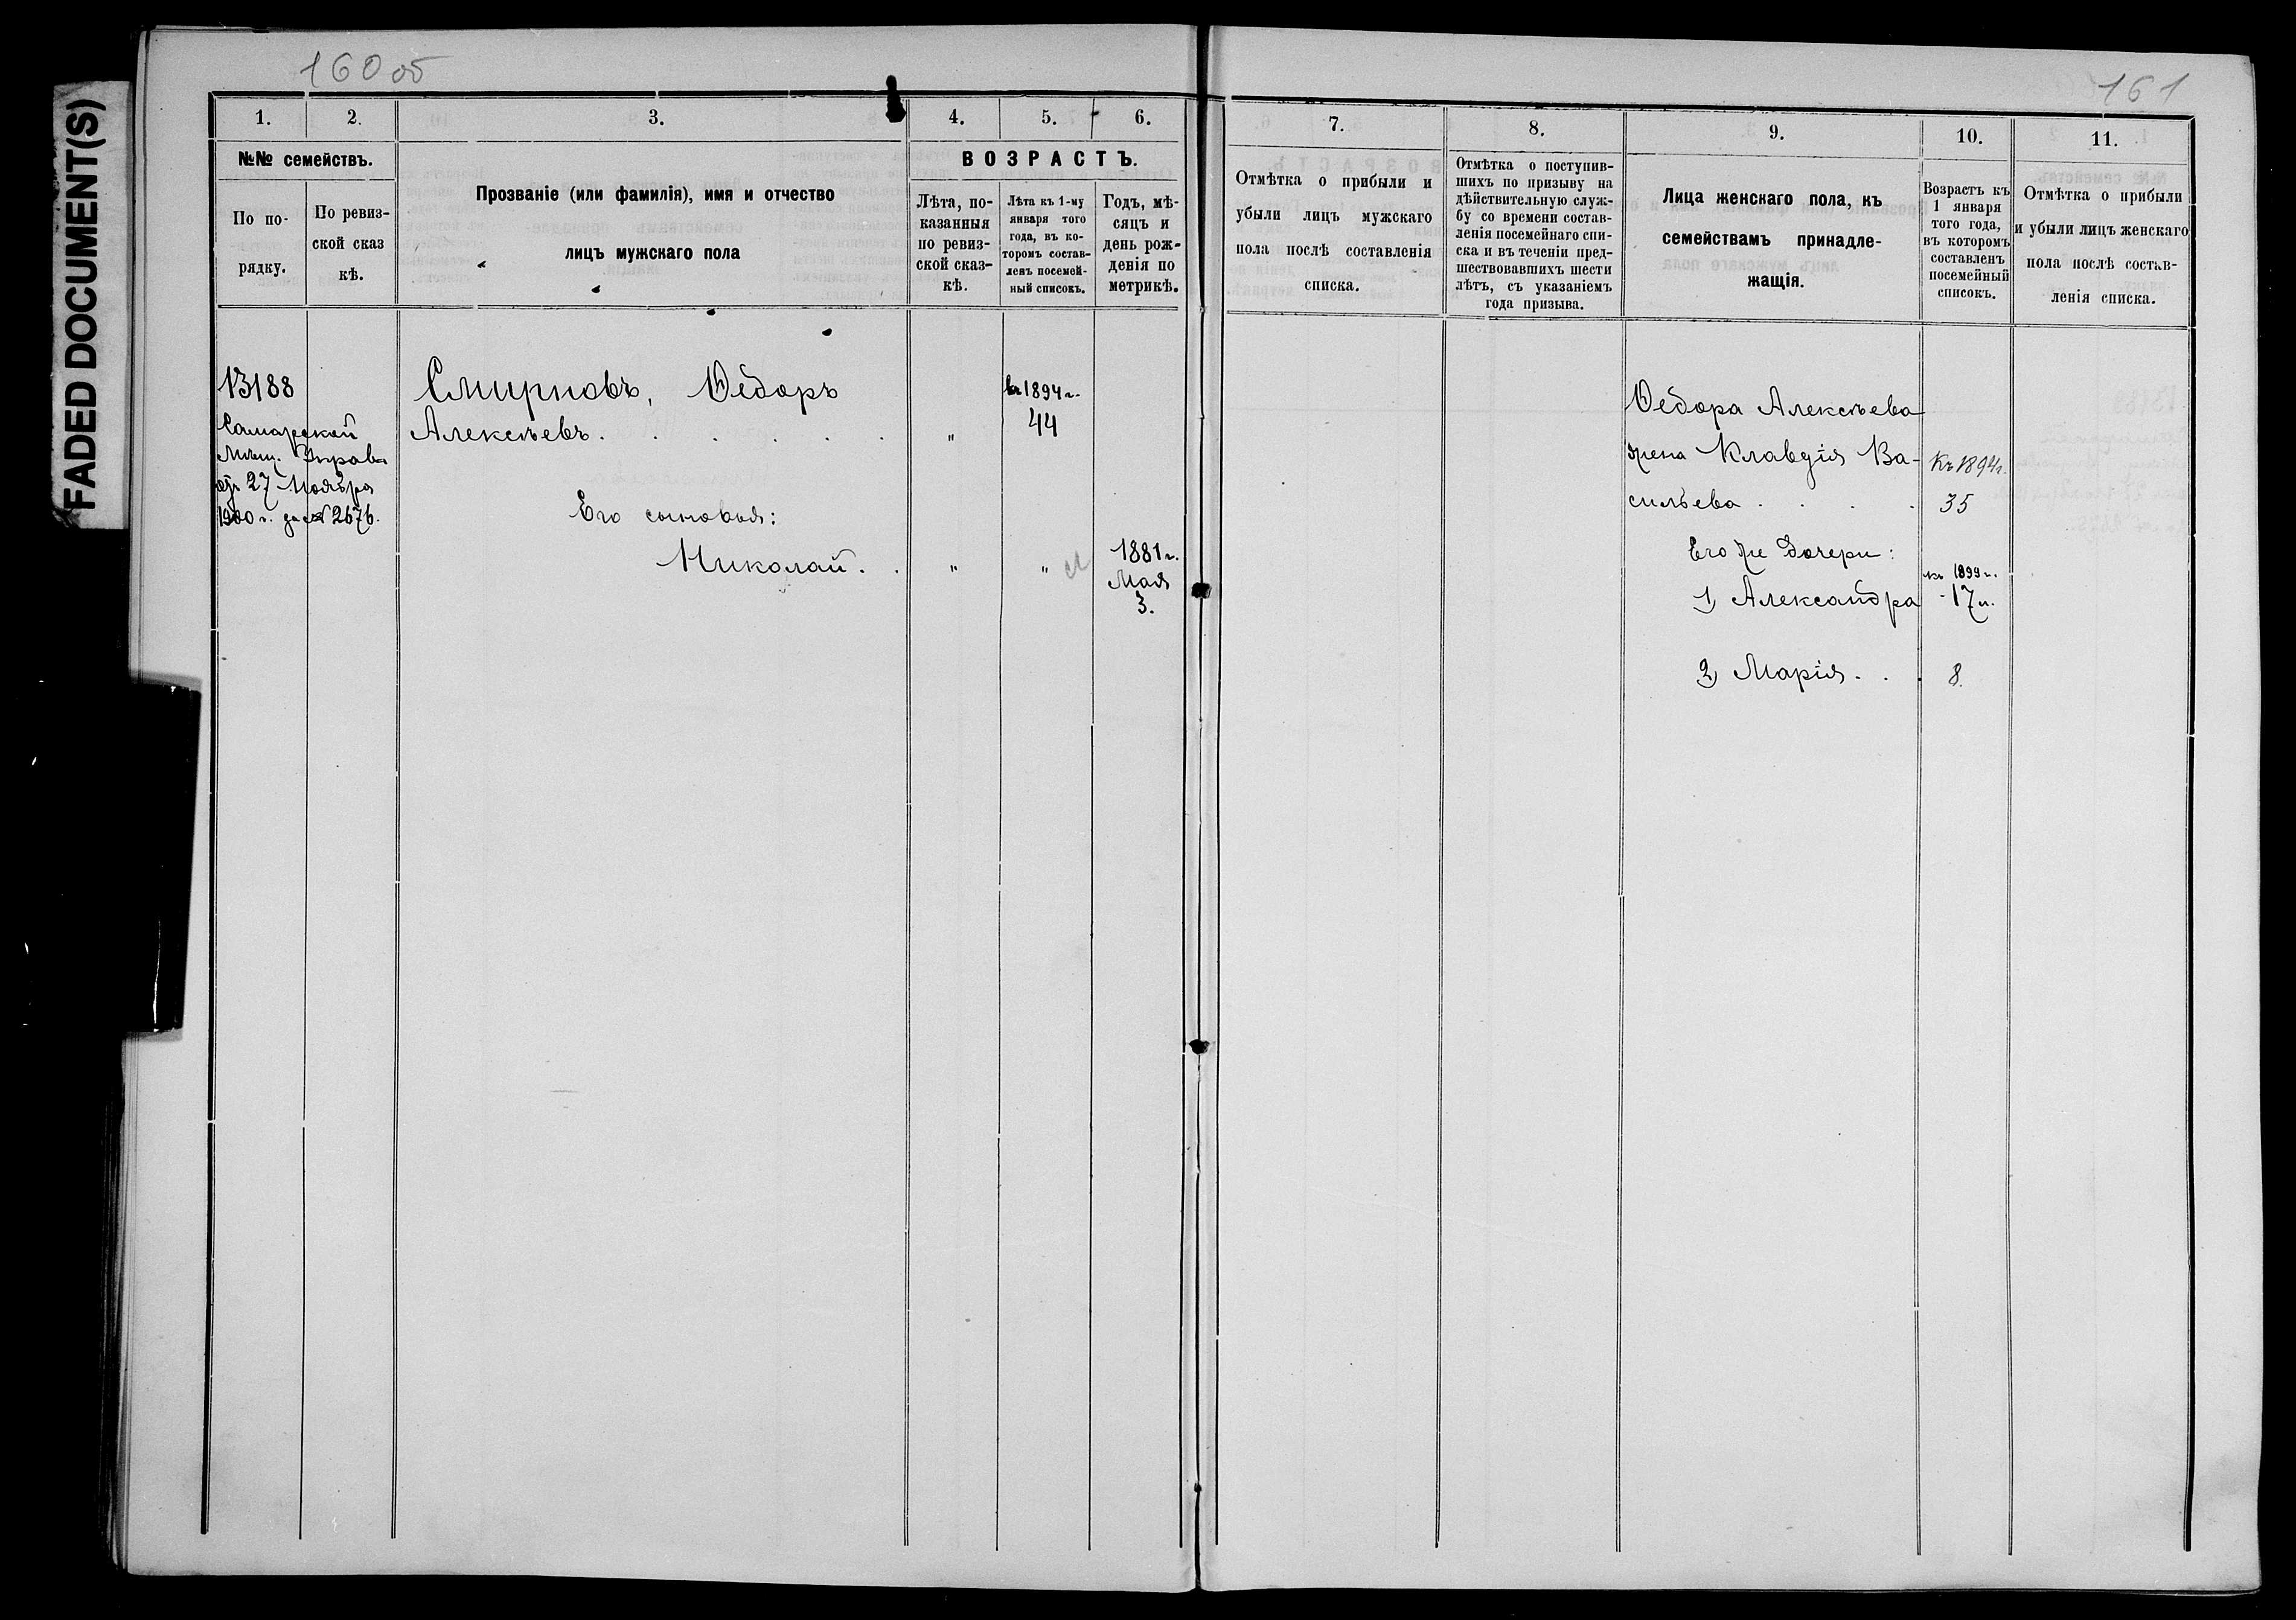 FADED DOCUMENT(S)
160 об
161
1. 2. 3. 4. 5. 6.
№№ семействъ.
По по-
рядку.
По ревиз-
ской сказ
кѣ.
Прозваніе (или фамилія), имя и отчество
лицъ мужскаго пола
ВОЗРАСТЪ.
Лѣта, по-
казанныя
по ревиз-
ской сказ-
кѣ.
Лѣта къ 1-му
января того
года, въ ко-
торомъ состав-
ленъ посемей-
ный списокъ.
Годъ, мѣ-
сяцъ и
день рож-
денія по
метрикѣ.
13188
Самарской
Мѣщ. Управы
отъ 27 Ноября
1900 г. за № 2676.
Смирновъ, Ѳедоръ
Алексѣевъ . . . . . . "
къ 1894 г.
44
Его сыновья:
Николай. . " "
1881 г.
Мая
3.
7. 8. 9. 10. 11.
Отмѣтка о прибыли и
убыли лицъ мужскаго
пола послѣ составленія
списка.
Отмѣтка о поступив-
шихъ по призыву на
дѣйствительную служ-
бу со времени состав-
ленія посемейнаго спи-
ска и въ теченіи пред-
шествовавшихъ шести
лѣтъ, съ указаніемъ
года призыва.
Лица женскаго пола, къ
семействамъ принадле-
жащія.
Возрастъ къ
1 января
того года,
въ которомъ
составленъ
посемейный
списокъ.
Отмѣтка о прибыли
и убыли лицъ женскаго
пола послѣ состав-
ленія списка.
Ѳедора Алексѣева
жена Клавдія Ва- Къ 1894 г.
сильева . . . . 35
Его же дочери:
къ 1899 г.
1) Александра 17 л.
2) Марія. . . 8.